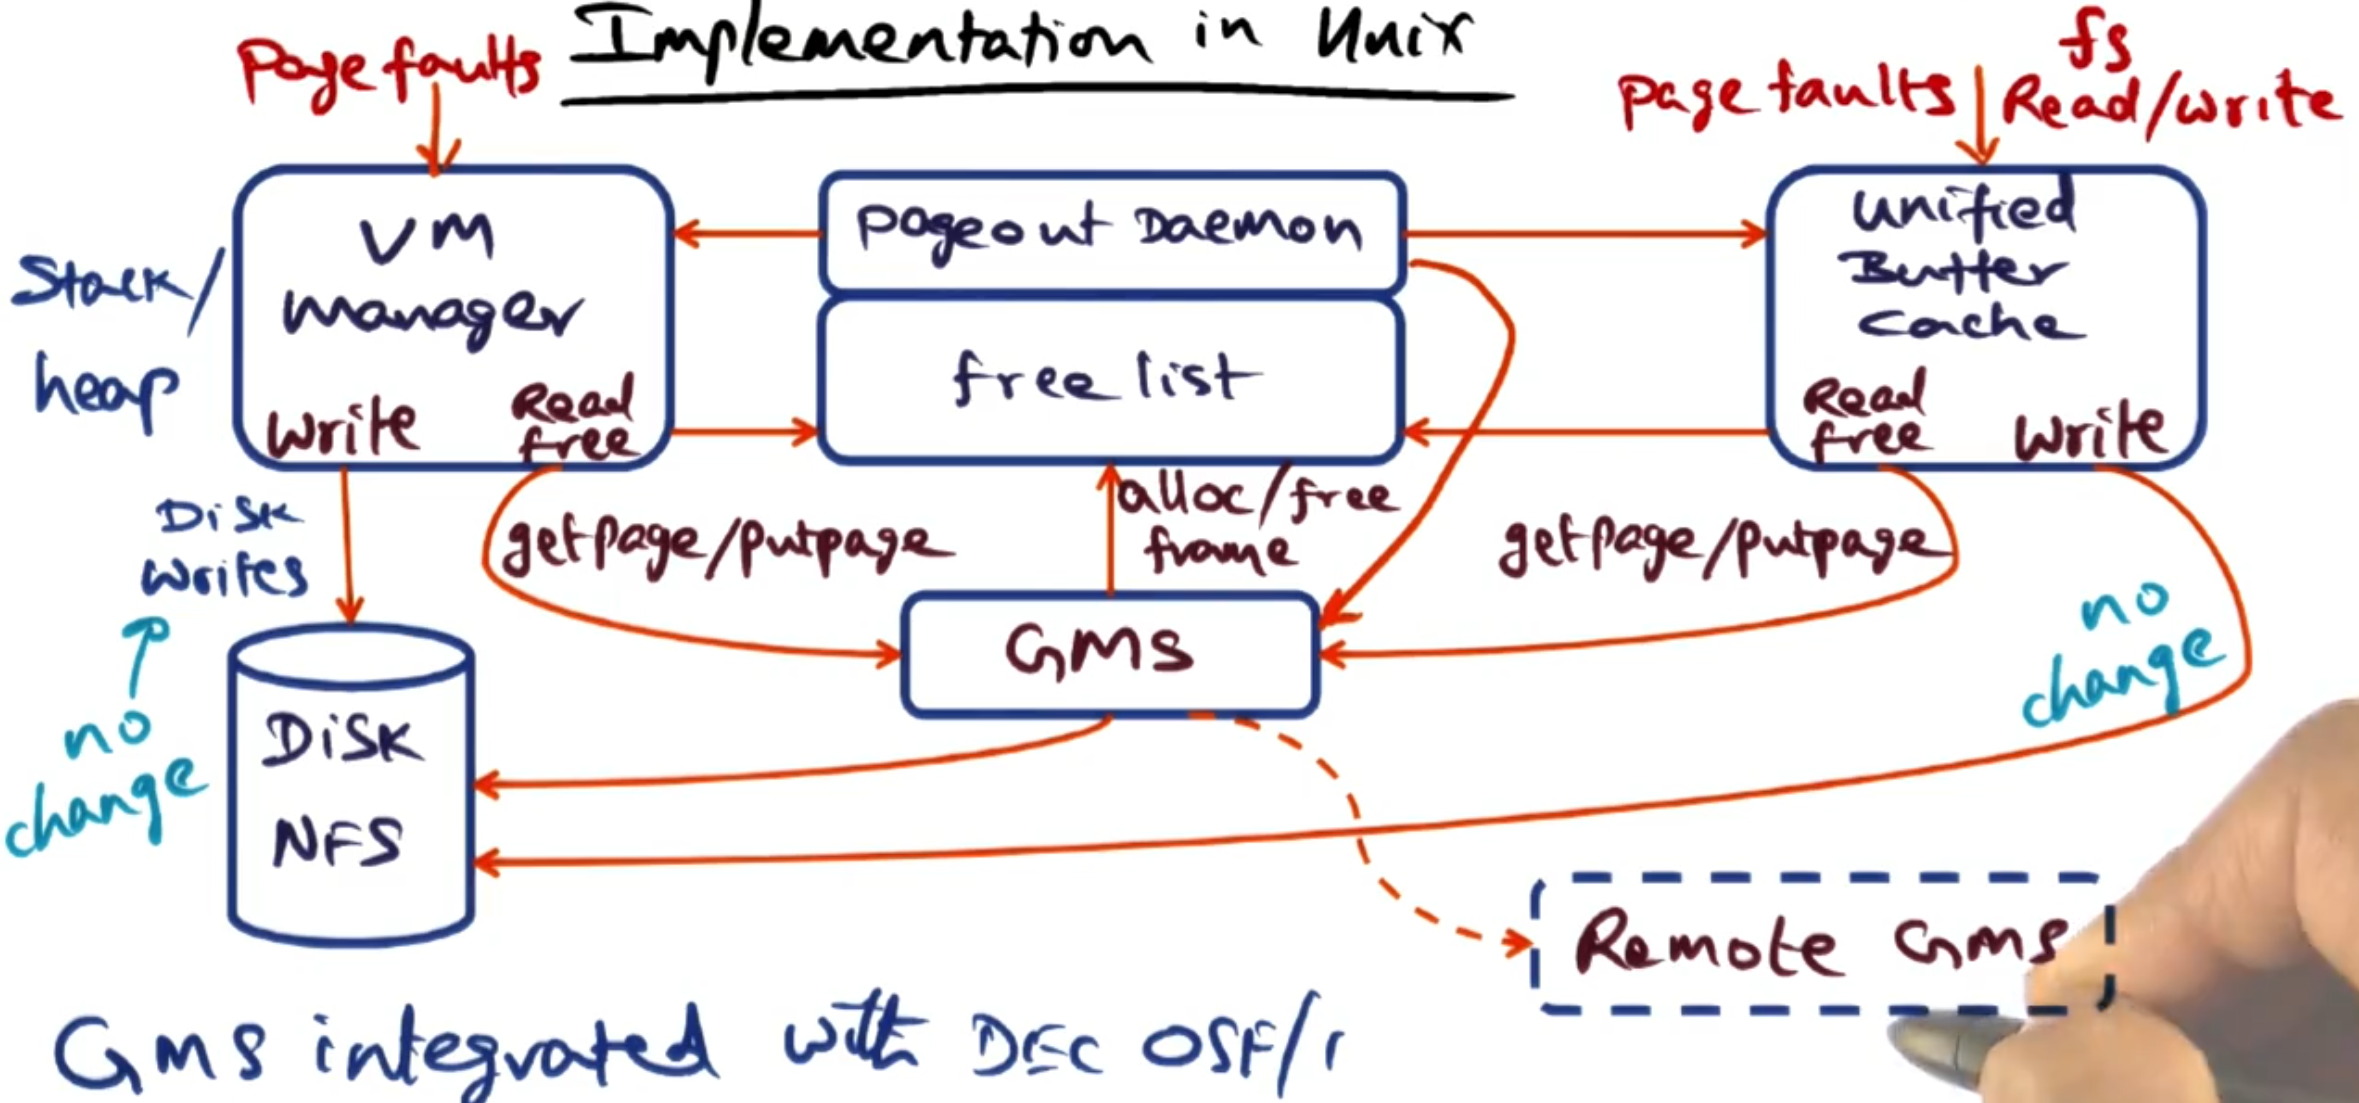 Implementation in Unix
Page faults
fs
page faults
Read/write
VM
Manager
Write
Read
free
Stack/
heap
Pageout Daemon
free list
Unified
Buffer
Cache
Read
free
Write
Disk
writes
getpage/putpage
alloc/free
frame
getpage/putpage
no
change
GMS
no
change
DiSK
NFS
Remote GMS
GMS integrated with DEC OSF/1